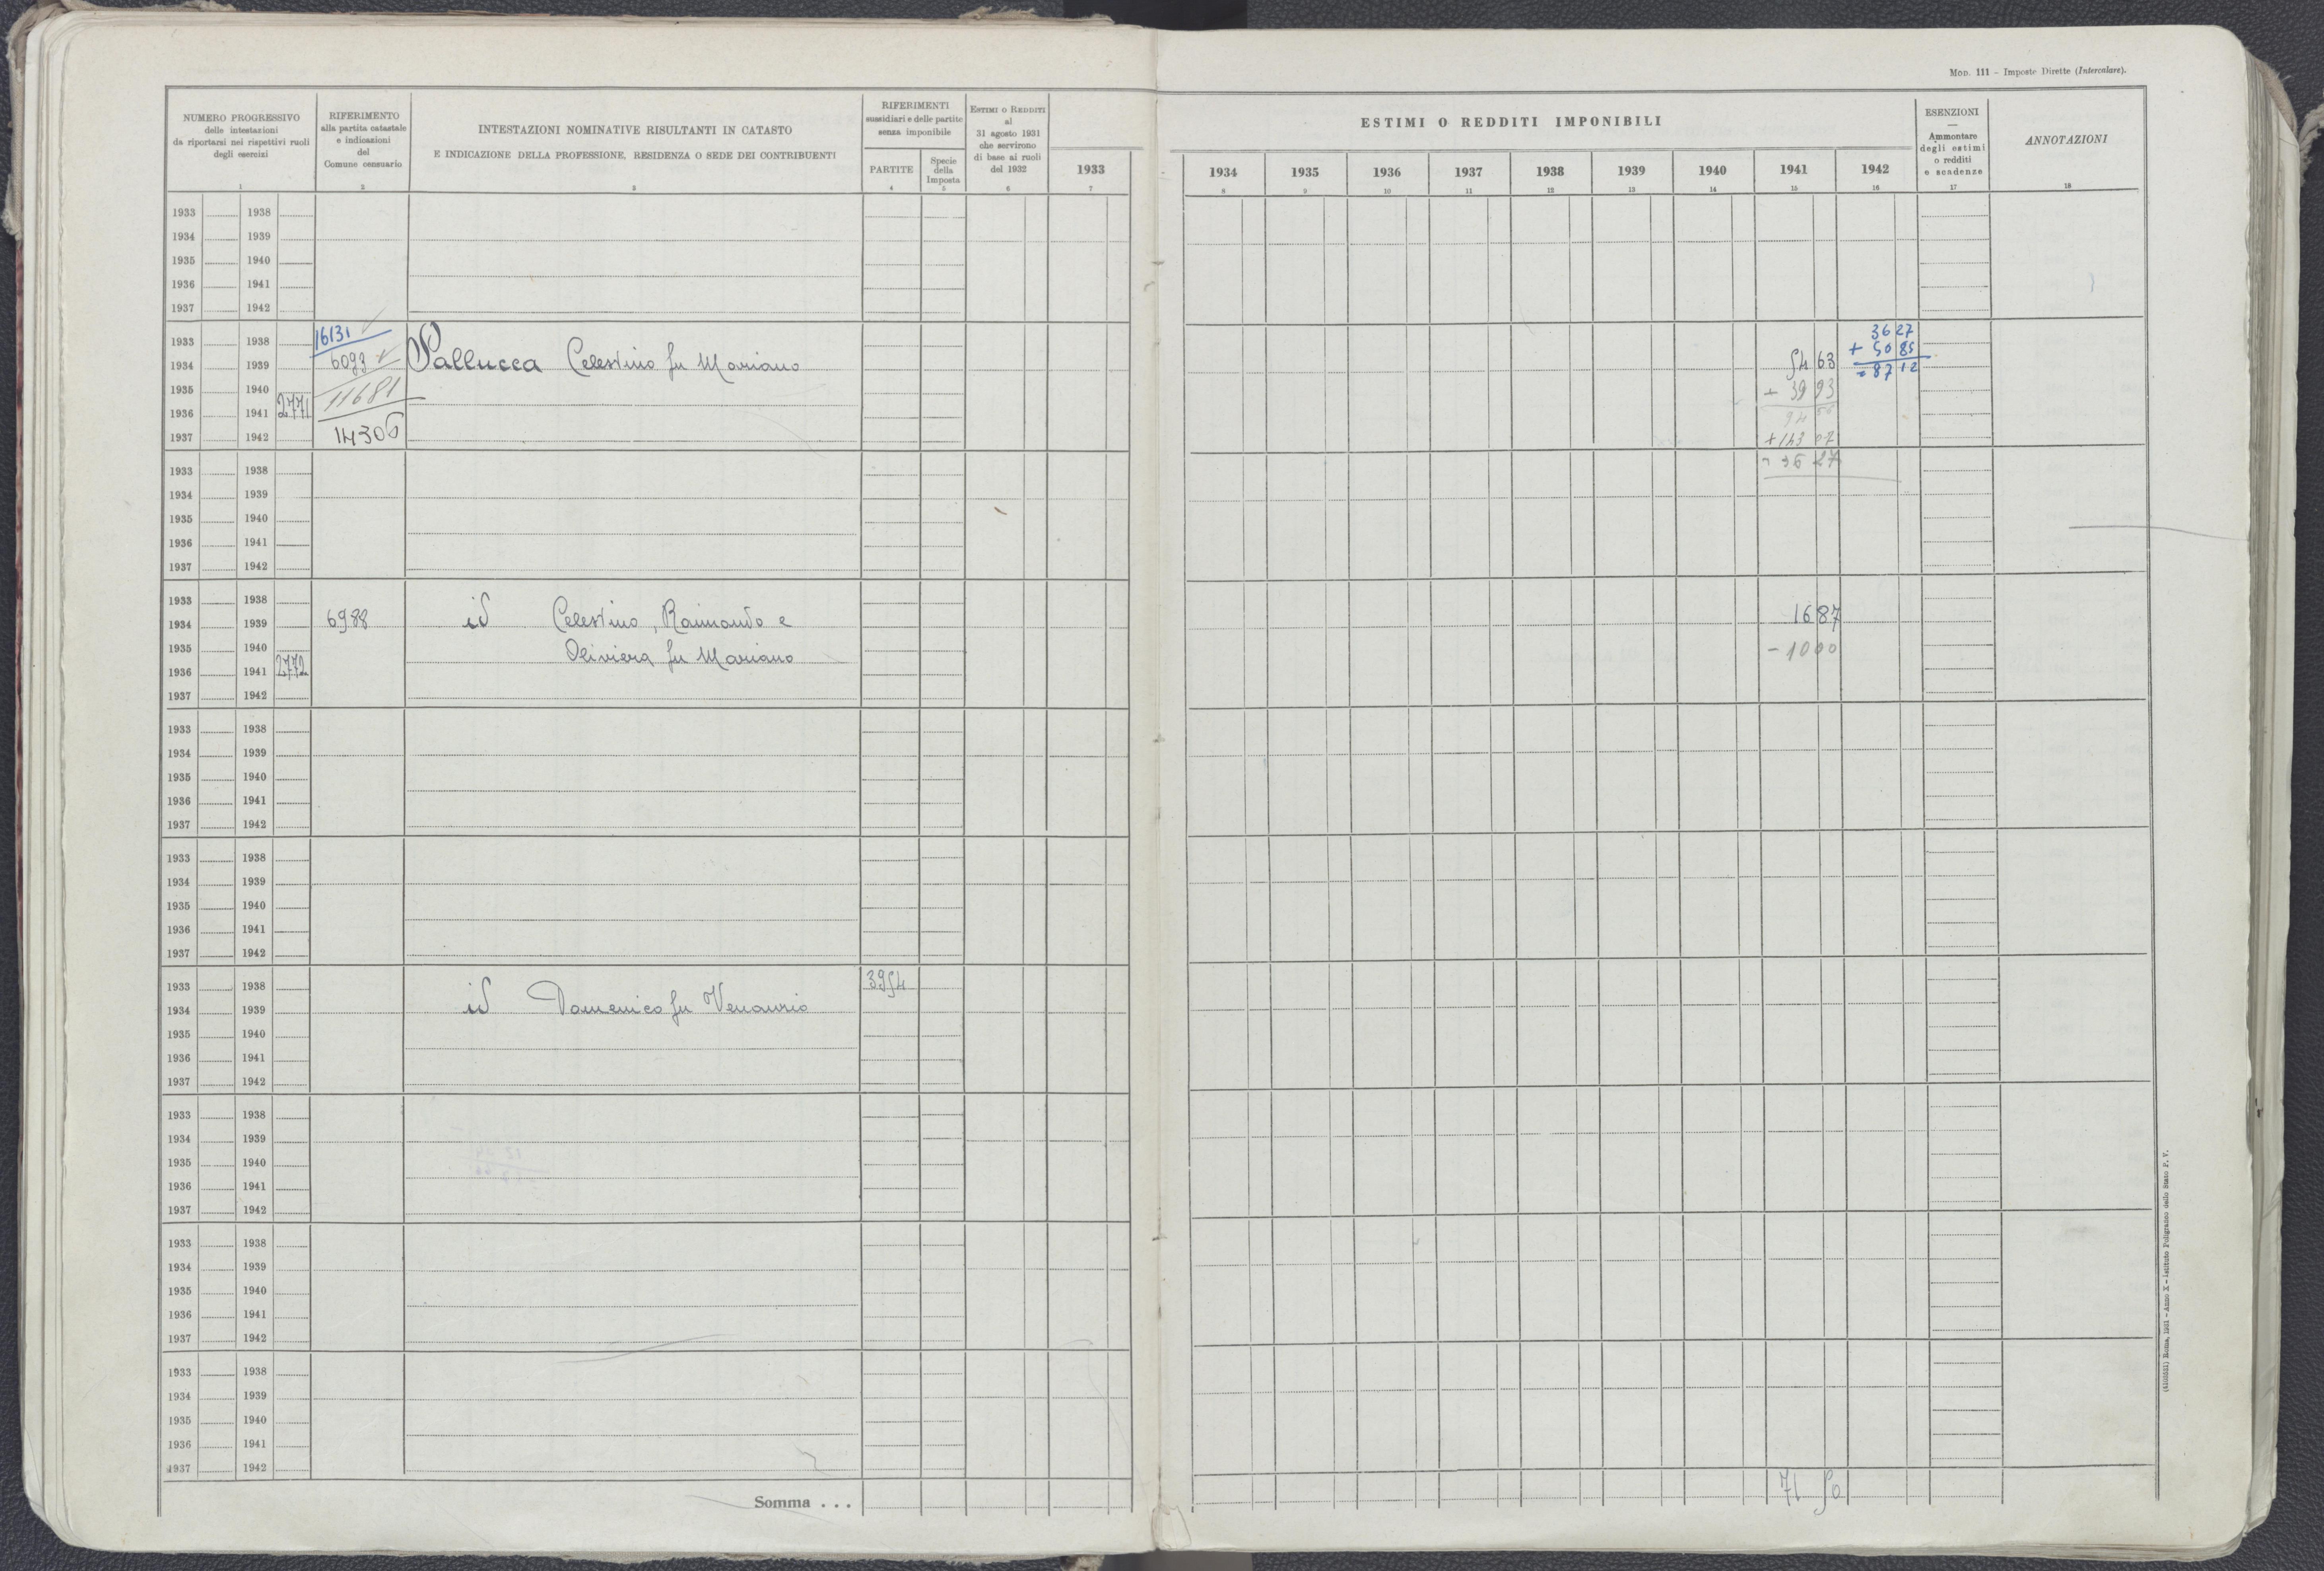 MOD. 111 – Imposte Dirette (Intercalare).
NUMERO PROGRESSIVO
delle intestazioni
da riportarsi nei rispettivi ruoli
degli esercizi
1
RIFERIMENTO
alla partita catastale
e indicazioni
del
Comune censuario
2
INTESTAZIONI NOMINATIVE RISULTANTI IN CATASTO
E INDICAZIONE DELLA PROFESSIONE, RESIDENZA O SEDE DEI CONTRIBUENTI
3
RIFERIMENTI
sussidiari e delle partite
senza imponibile
PARTITE
4
Specie
della
Imposta
5
ESTIMI O REDDITI
al
31 agosto 1931
che servirono
di base ai ruoli
del 1932
6
1933
7
ESTIMI O REDDITI IMPONIBILI
1934 1935 1936 1937 1938 1939 1940 1941 1942
8 9 10 11 12 13 14 15 16
ESENZIONI
—
Ammontare
degli estimi
o redditi
e scadenze
17
ANNOTAZIONI
18
1933 1938
1934 1939
1935 1940
1936 1941
1937 1942
1933 1938 16131 36 27
1934 1939 6093 Pallucca Celestino fu Mariano 54 63 + 50 85
1935 1940 11681 + 39 93 = 87 12
1936 1941 2771 94 56
1937 1942 14306 + 143 07
1933 1938 36 27
1934 1939
1935 1940
1936 1941
1937 1942
1933 1938
1934 1939 6988 id Celestino, Raimondo e 16 87
1935 1940 Oliviera fu Mariano - 10 00
1936 1941 2772
1937 1942
1933 1938
1934 1939
1935 1940
1936 1941
1937 1942
1933 1938
1934 1939
1935 1940
1936 1941
1937 1942
1933 1938 3954
1934 1939 id Domenico fu Venanzio
1935 1940
1936 1941
1937 1942
1933 1938
1934 1939
1935 1940
1936 1941
1937 1942
1933 1938
1934 1939
1935 1940
1936 1941
1937 1942
1933 1938
1934 1939
1935 1940
1936 1941
1937 1942
Somma . . . 71 50
Roma, 1931 – Anno X – Istituto Poligrafico dello Stato P. V.